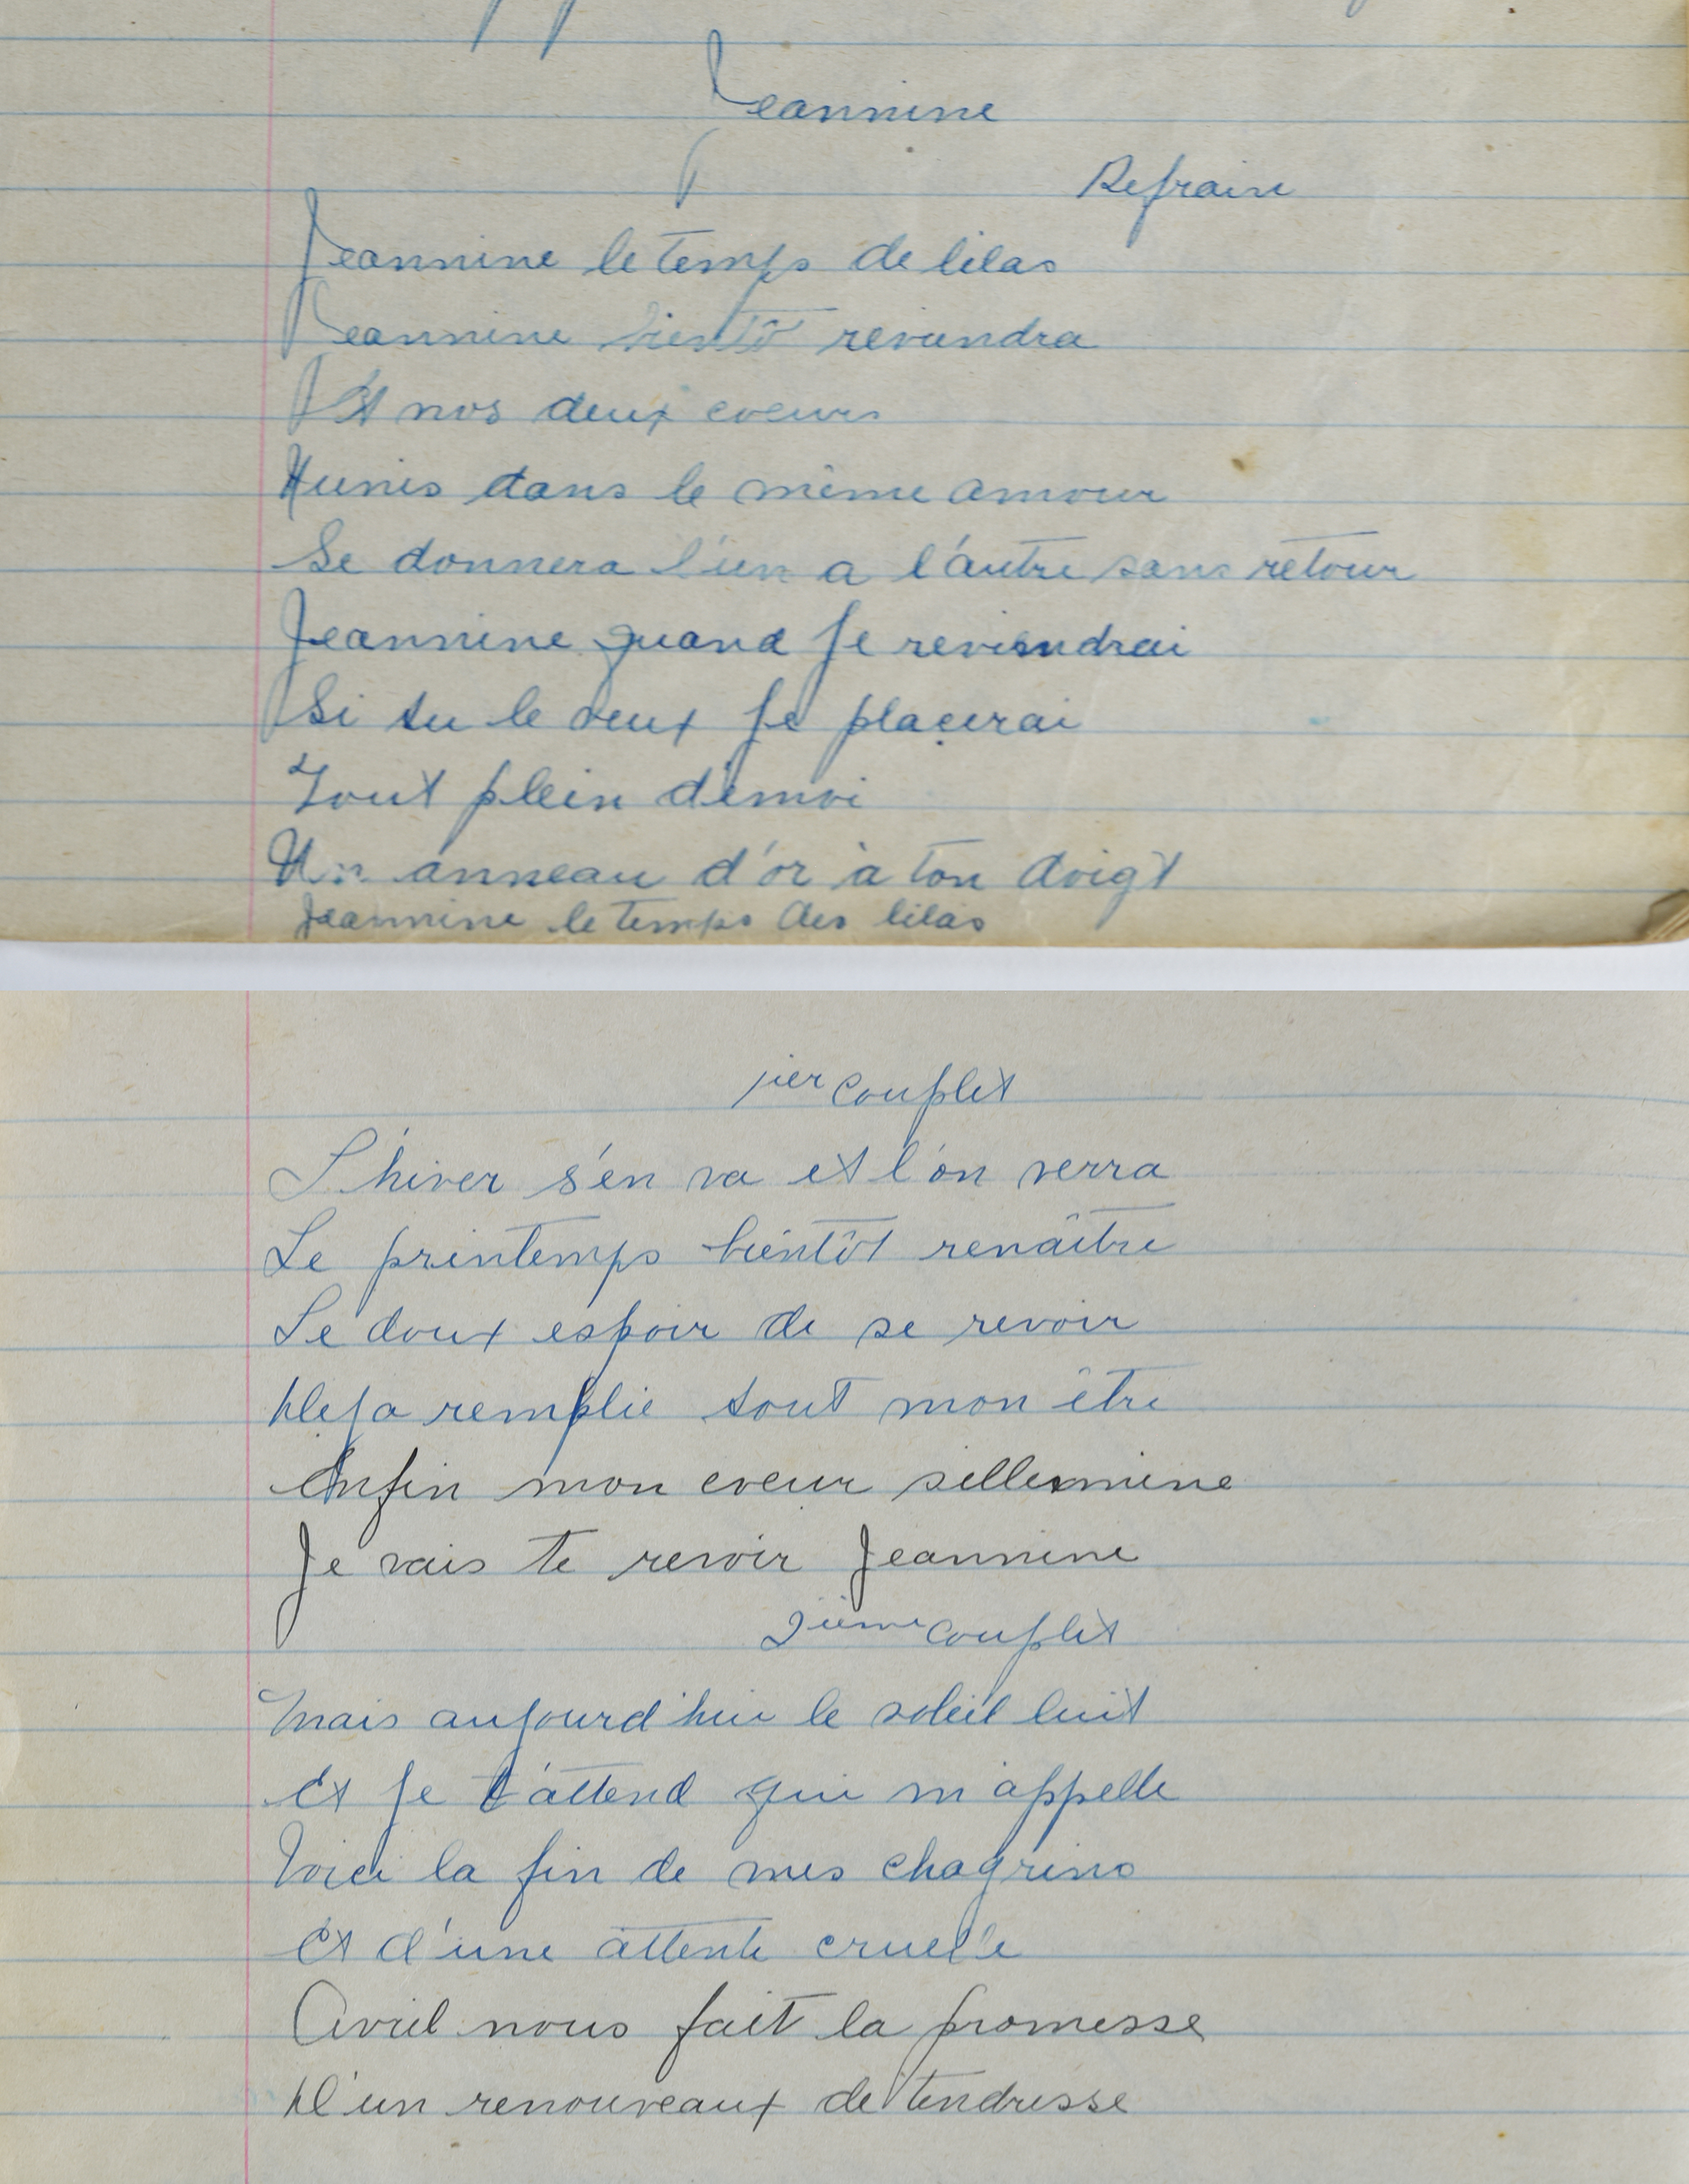 Jeannine
Refrain
Jeannine le temps de lilas
Jeannine bientô revundra
Et nos deux coeurs
Hunis dans le même amour
Se donnera l'un a l'autre sans retour
Jeannine quand je reviendrai
Si tu le veux je plaçerai
Tout plein d'émoi
Un anneau d'or à ton doigt
Jeannine le temps des lilas
1ier couplet
L'hiver s'en va et l'on verra
Le printemps bientôt renaître
Le doux espoir de se revoir
Deja remplie tout mon être
Enfin mon coeur sillemine
Je vais te revoir Jeannine
2ième couplet
Mais aujourd'hui le soleil luit
Et je t'attend qui m'appelle
Voici la fin de mes chagrins
Et d'une attente cruelle
Avril nous fait la promesse
D'un renouveaux de tendresse